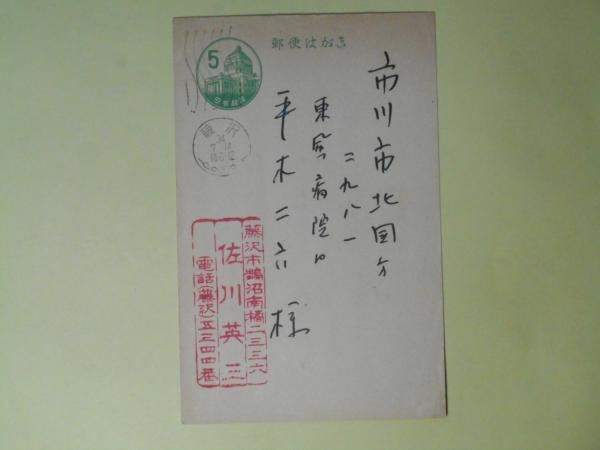 郵便はがき
5
日本郵便
藤沢
市川市北国分
二九八一
東風病院内
平木二六様
藤沢市鵠沼南橘二三三六
佐川英三
電話(藤沢)五三四四番